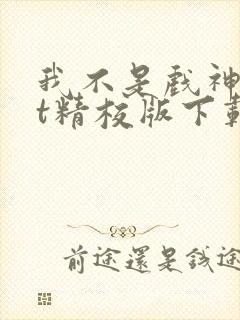 我不是戏神
t精校版下载
前途還是錢途